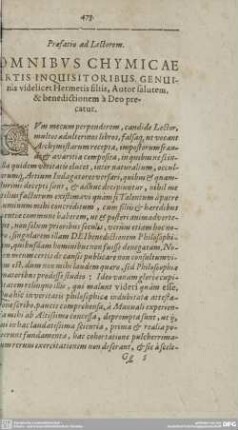 475.
Præfatio ad Lectorem.
OMNIBVS CHYMICAE
ARTIS INQUISITORIBUS, GENUI-
nis videlicet Hermetis filiis, Autor salutem,
& benedictionem à Deo pre-
catur.
CVm mecum perpenderem, candide Lector,
multos adulterinos libros, falsas, ut vocant
Archymistarum recepta, impostorum frau-
de & avaritia composita, in quibus ne
quidem veritatis eluceat, inter naturalium, occul-
Artium Indagatores versari, quibus & quam-
plurimi decepti sunt, & adhuc decipiuntur, nihil me
utilius facturum existimavi quàm si Talentum à patre
luminum mihi concreditum, cum filiis & hæredibus
communē haberem, ut & posteri animadverte-
rent, non solum prioribus seculis, verùm etiam hoc no-
stro, singularem illam DEI benedictionem Philosophi-
cam, quibusdam hominibus non fuisse denegatam. No-
men meum certis de causis publicare non consultum vi-
sum est, dum non mihi laudem quæro, sed Philosophiæ
prodesse studeo: Ideo vanam gloriæ cupi-
ditatem relinquo illis, qui malunt videri quàm esse.
Quæ hic in veritatis philosophicæ indubitatæ attesta-
scribo, paucis comprehensa, à Manuali experien-
mihi ab Altissimo concessa, deprompta sunt, ut ij,
qui in hac laudatissima scientia, prima & realia po-
suerunt fundamenta, hac cohortatione pulcherrima-
rum rerum exercitationem non deserant, & sic à scele-
Gg 5